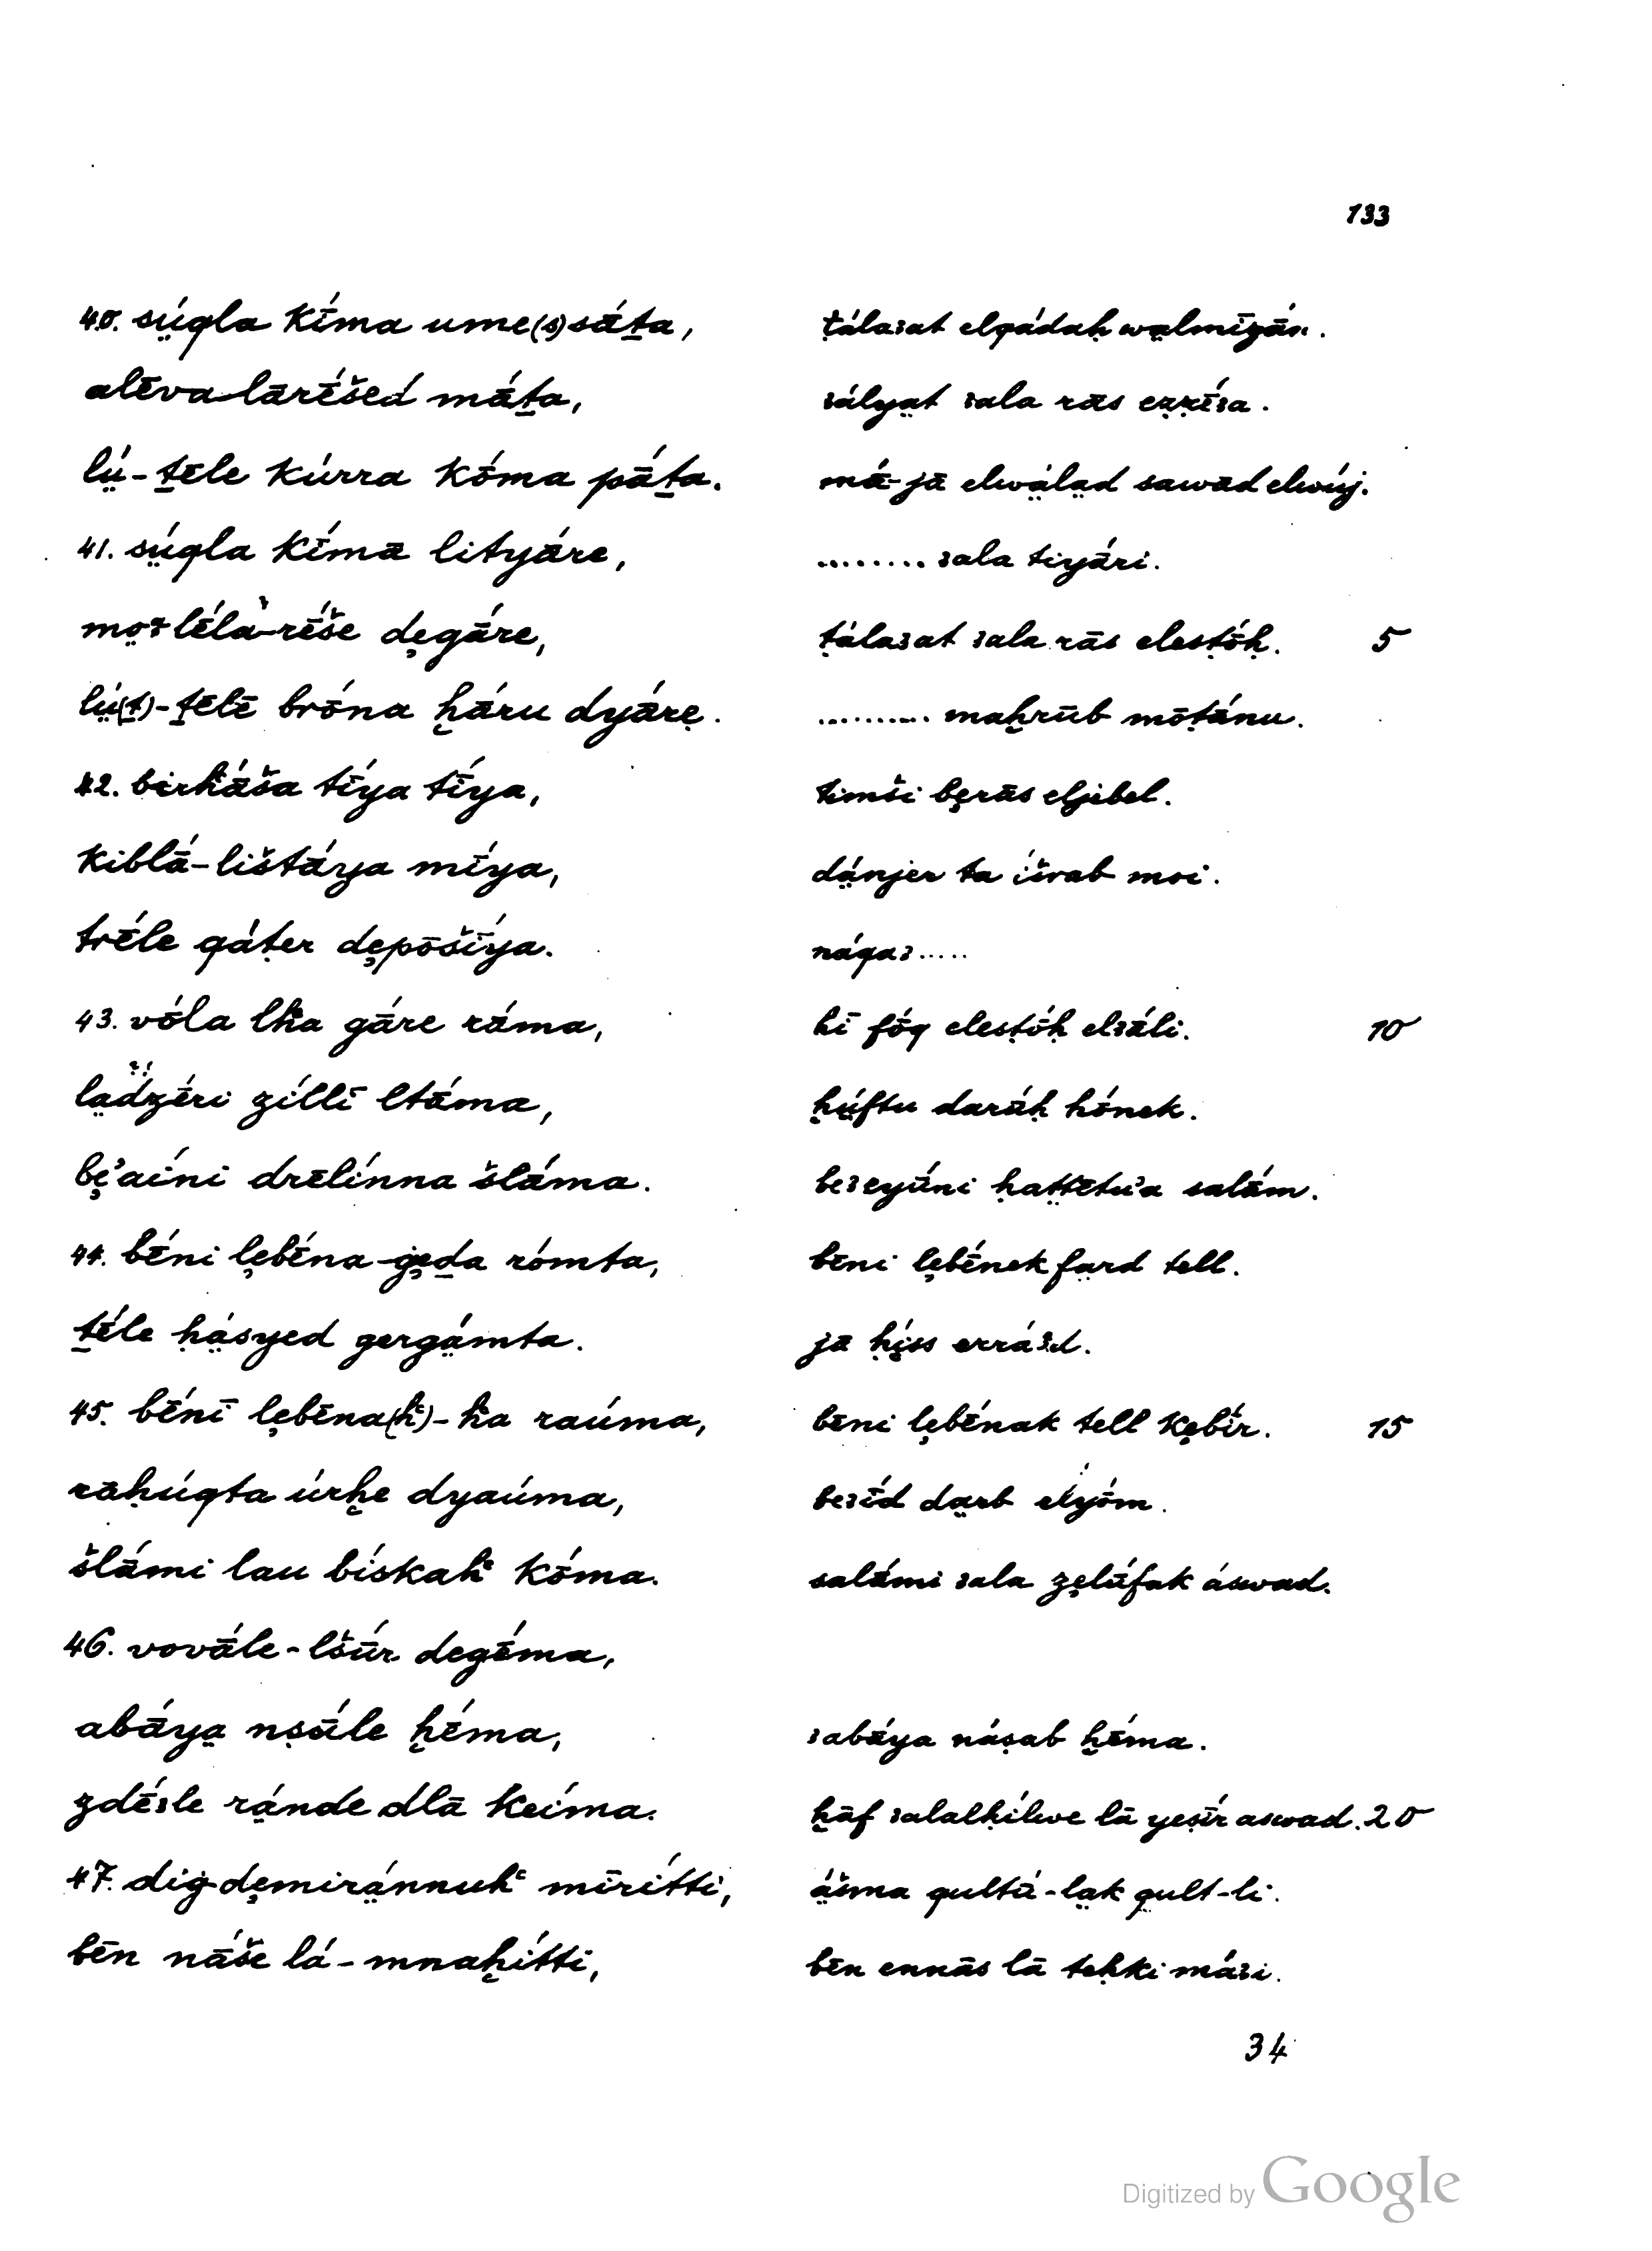 133
40. sṳ́qla kī́ma ume(s)sā́ṯa, ṭálaꜥat elqádaḥ wa̤lmīzā́n.
alēva-lārḗšed mā́ṯa, ꜥálya̤t ꜥala rās eẓẓḗꜥa.
lṳ́-ṯēle kúrra kṓma pā́ṯa. mā́-jā elwála̤d sawād elwúj.
41. sṳ́qla kī́mā lityā́re, ........ ꜥala tiyā́ri.
mo̤ꜥlēla-rḗše de̦gā́re, ṭálaꜥat ꜥala rās elesṭṓḥ. 5
lṳ́(ṯ)-ṯēlē brṓna ḫā́ru dyā́re̤. ......... maḫrūb mōṭā́nu.
42. birḣā́ša tī́ya tī́ya, timši be̦rās eljebel.
kiblā́-lištā́ya mī́ya, dánjer ta íšrab moi.
trḗle qáṭer de̦pōšī́ya. nágaꜥ.....
43. vṓla lḣa gāre rā́ma, hī fṓq elesṭṓḥ elꜥā́li. 10
la̤dzḗri zíllī ltā́ma, ḫṳ́ftu darā́ḥ hṓnek.
be̦'aíni drēlínna šlā́ma. beꜥeyū́ni ḥaṭṭētū'a salā́m.
44. bḗni le̦bḗna-ġe̦ḏa rómta, bēni le̦bḗnek fa̤rd tell.
ṯḗle ḥá̤syed gerga̤mta. jā ḥi̤ss erráꜥd.
45. bḗnī le̦bēna(ḣ)-ḣa raúma, bēni le̦bḗnak tell ke̦bī́r. 15
rāḥúqta úrḫe dyaúma, beꜥī́d da̤rb elyṓm.
šlā́mi lau bískaḣ kṓma. salā́mi ꜥala ze̦lū́fak áswad.
46. vovā́le-lšūr degḗma,
abā́ya̤ nṣā́le ḫḗma, ꜥabā́ya náṣab ḫḗma.
zdḗꜥle rá̤nde dlā keíma. ḫāf ꜥalalḥílwe lā yeṣīr aswad. 20
47. dig̣de̦mirá̤nnuḣ mīrítti, á̤šma qultū́-la̤k qult-li.
bēn nā́še lá-mnaḫítti, bēn ennās lā teḥki máꜥi.
34
Digitized by Google